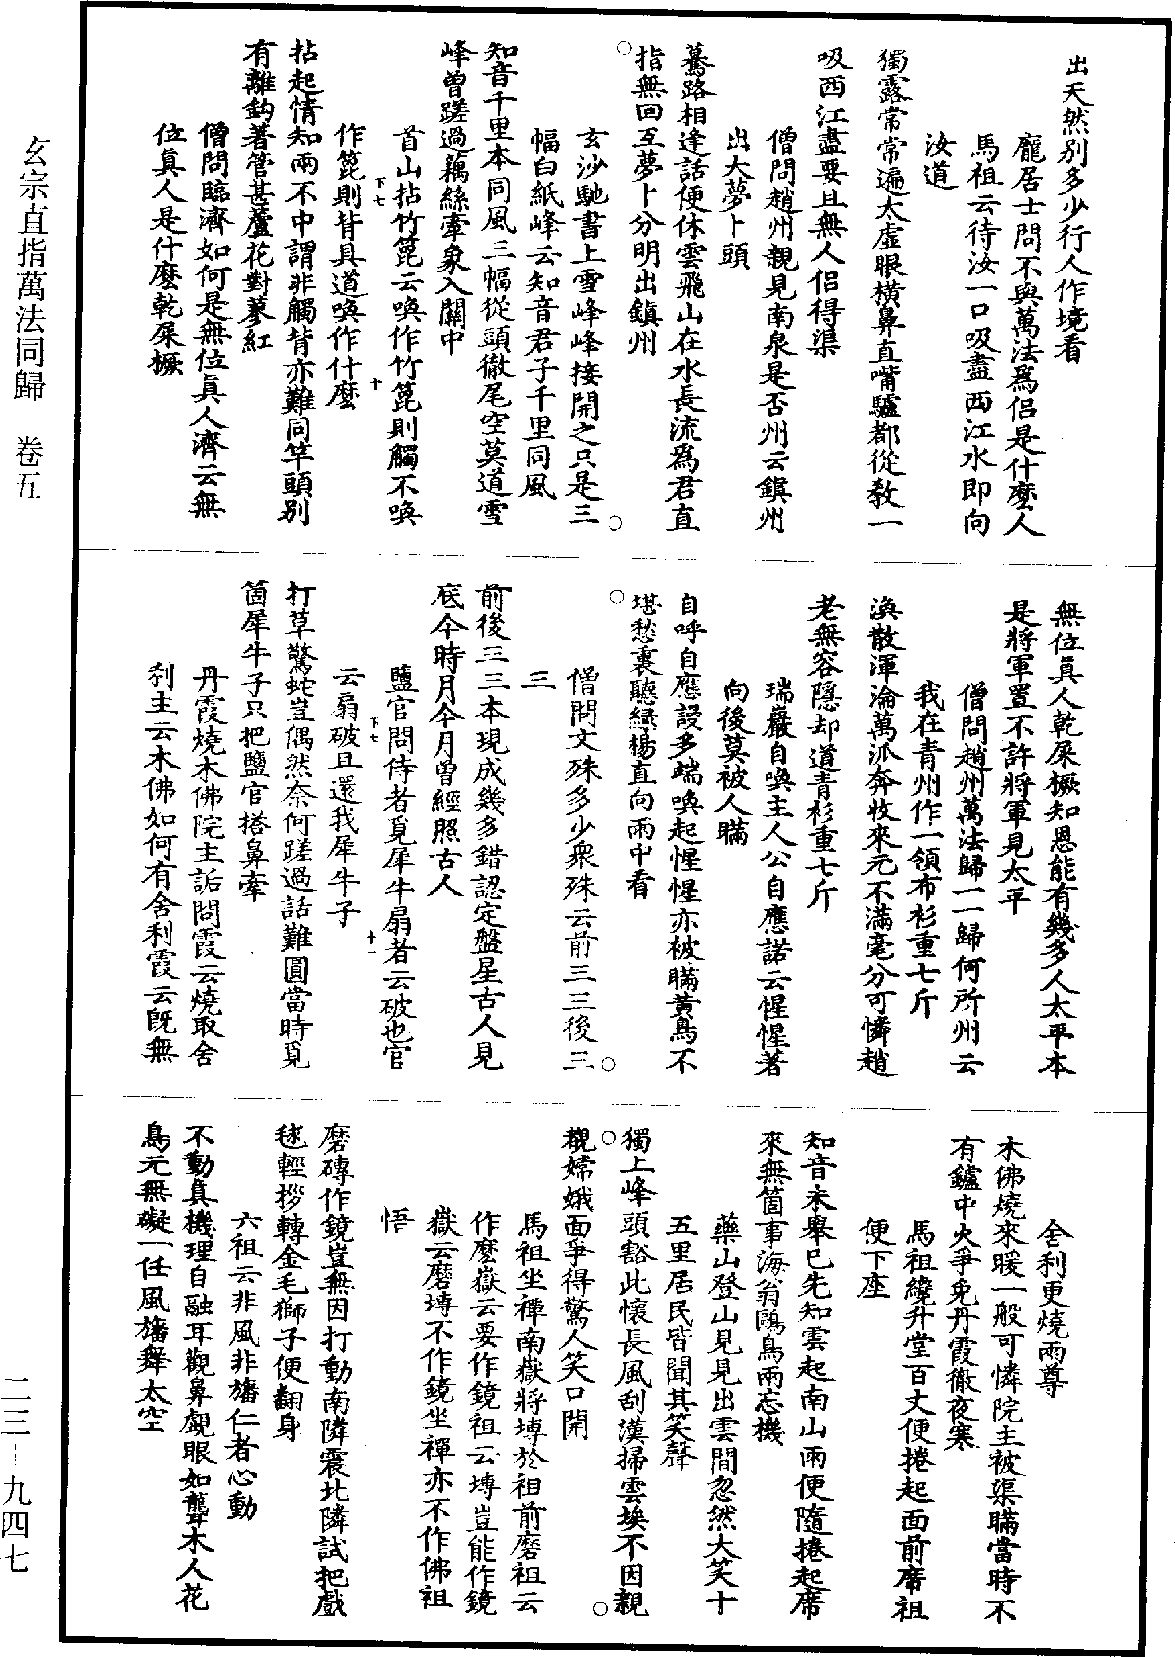 出天然別多少行人作境看
龐居士問不與萬法爲侶是什麼人
馬祖云待汝一口吸盡西江水即向
汝道
獨露常常遍太虛眼橫鼻直嘴驢都從教一
吸西江盡要且無人侶得渠
僧問趙州親見南泉是否州云鎮州
出大蘿卜頭
驀路相逢話便休雲飛山在水長流爲君直
指無回互蘿卜分明出鎮州
玄沙馳書上雪峰峰接開之只是三
幅白紙峰云知音君子千里同風
知音千里本同風三幅從頭徹尾空莫道雪
峰曾蹉過藕絲牽象入關中
首山拈竹篦云喚作竹篦則觸不喚
作篦則背且道喚作什麼
拈起情知兩不中謂非觸背亦難同竿頭別
有離鈎著管甚蘆花對蓼紅
僧問臨濟如何是無位眞人濟云無
位眞人是什麼乾屎橛
無位眞人乾屎橛知恩能有幾多人太平本
是將軍置不許將軍見太平
僧問趙州萬法歸一一歸何所州云
我在青州作一領布衫重七斤
渙散渾淪萬派奔收來元不滿毫分可憐趙
老無容隱却道青衫重七斤
瑞巖自喚主人公自應諾云惺惺著
向後莫被人瞞
自呼自應設多端喚起惺惺亦被瞞黃鳥不
堪愁裏聽綠楊直向雨中看
僧問文殊多少衆殊云前三三後三
三
前後三三本現成幾多錯認定盤星古人見
底今時月今月曾經照古人
鹽官問侍者覓犀牛扇者云破也官
云扇破且還我犀牛子
打草驚蛇豈偶然奈何蹉過話難圓當時覓
箇犀牛子只把鹽官搭鼻牽
丹霞燒木佛院主詬問霞云燒取舍
利主云木佛如何有舍利霞云旣無
舍利更燒兩尊
木佛燒來暖一般可憐院主被渠瞞當時不
有鑪中火爭免丹霞徹夜寒
馬祖纔升堂百丈便捲起面前席祖
便下座
知音未舉已先知雲起南山雨便隨捲起席
來無箇事海翁鷗鳥兩忘機
藥山登山見見出雲間忽然大笑十
五里居民皆聞其笑聲
獨上峰頭豁此懷長風刮漢掃雲埃不因親
覩嫦娥面爭得驚人笑口開
馬祖坐禪南嶽將塼於祖前磨祖云
作麼嶽云要作鏡祖云塼豈能作鏡
嶽云磨塼不作鏡坐禪亦不作佛祖
悟
磨磚作鏡豈無因打動南隣震北隣試把戲
毬輕拶轉金毛獅子便翻身
六祖云非風非旛仁者心動
不動真機理自融耳觀鼻覷眼如聾木人花
鳥元無礙一任風旛舞太空
下七
十
下七
十一
玄宗直指萬法同歸 卷五
二三—九四七